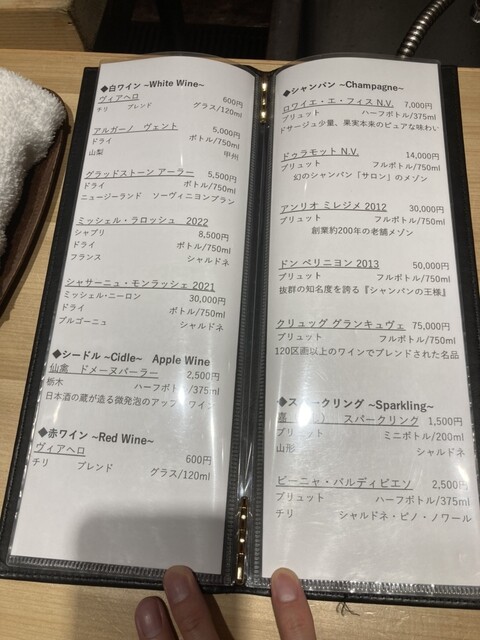 ◆白ワイン ~White Wine~
ヴィアヘロ 600円
チリ ブレンド グラス/120ml
アルガーノ ヴェント 5,000円
ドライ ボトル/750ml
山梨 甲州
グラッドストーン アーラー 5,500円
ドライ ボトル/750ml
ニュージーランド ソーヴィニヨンブラン
ミッシェル・ラロッシュ 2022
シャブリ 8,500円
ドライ ボトル/750ml
フランス シャルドネ
シャサーニュ・モンラッシェ 2021
ミッシェル・ニーロン 30,000円
ドライ ボトル/750ml
ブルゴーニュ シャルドネ
◆シードル ~Cidle~ Apple Wine
仙禽 ドメーヌパーラー 2,500円
栃木 ハーフボトル/375ml
日本酒の蔵が造る微発泡のアップルワイン
◆赤ワイン ~Red Wine~
ヴィアヘロ 600円
チリ ブレンド グラス/120ml
◆シャンパン ~Champagne~
ロワイエ・エ・フィス N.V. 7,000円
ブリュット ハーフボトル/375ml
ドサージュ少量、果実本来のピュアな味わい
ドゥラモット N.V. 14,000円
ブリュット フルボトル/750ml
幻のシャンパン「サロン」のメゾン
アンリオ ミレジメ 2012 30,000円
ブリュット フルボトル/750ml
創業約200年の老舗メゾン
ドン ペリニヨン 2013 50,000円
ブリュット フルボトル/750ml
抜群の知名度を誇る『シャンパンの王様』
クリュッグ グランキュヴェ 75,000円
ブリュット フルボトル/750ml
120区画以上のワインでブレンドされた名品
◆スパークリング ~Sparkling~
嘉 スパークリング 1,500円
ブリュット ミニボトル/200ml
山形 シャルドネ
ビーニャ・バルディビエソ 2,500円
ブリュット ハーフボトル/375ml
チリ シャルドネ・ピノ・ノワール